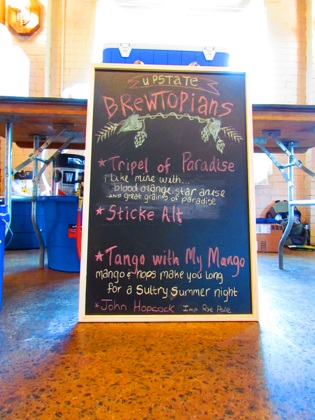 UPSTATE
BREWTOPIANS
* Tripel of Paradise
Like mine with...
blood orange, star anise
and great grains of paradise
* Sticke Alt
* Tango with My Mango
mango & hops make you long
for a Sultry Summer night
* John Hopcock Imp Rye Ale